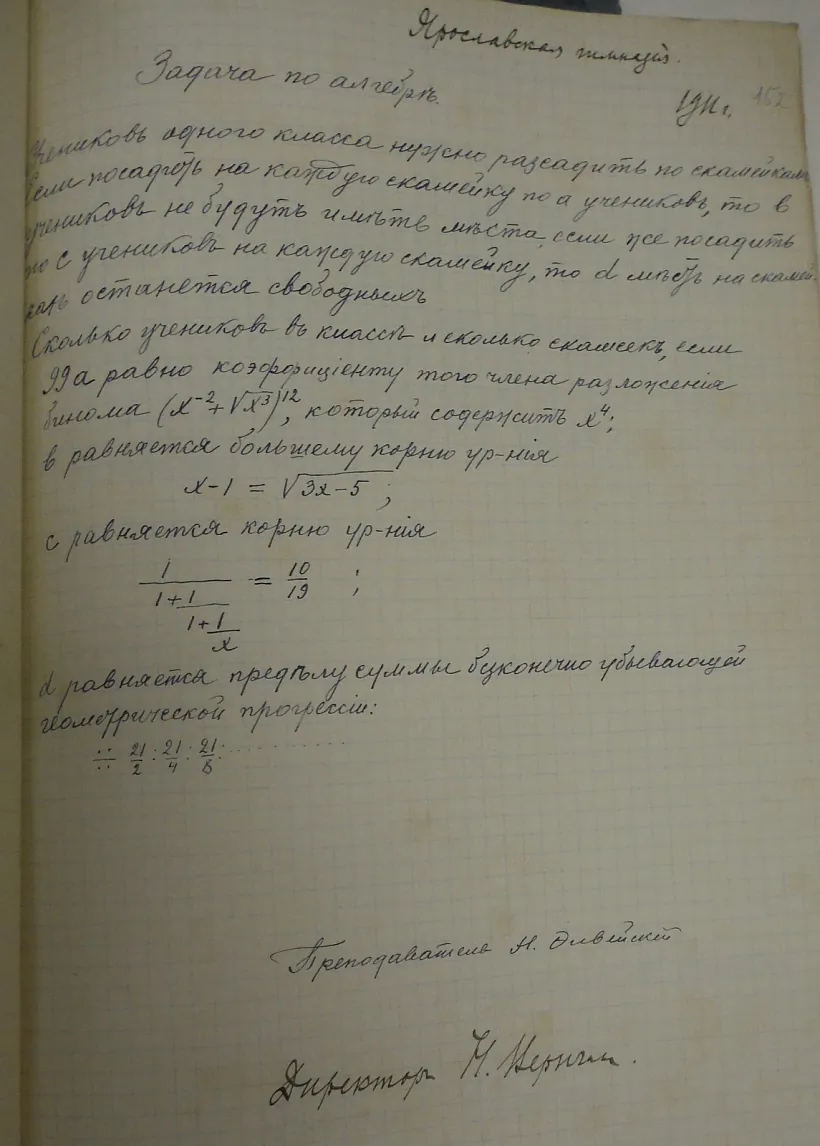 Ярославская гимназія.
Задача по алгебрѣ.
1911 г. 152
Учениковъ одного класса нужно разсадить по скамейкамъ
Если посадить на каждую скамейку по a учениковъ, то в
учениковъ не будутъ имѣть мѣста, если же посадить
по c учениковъ на каждую скамейку, то d мѣстъ на скамей-
кахъ останется свободныхъ
Сколько учениковъ въ классѣ и сколько скамеекъ, если
99a равно коэффиціенту того члена разложенія
бинома (x⁻² + √x³)¹², который содержитъ x⁴;
в равняется большему корню ур-нія
x-1 = √3x-5 ;
c равняется корню ур-нія
1/(1+1/(1+1/x)) = 10/19 ;
d равняется предѣлу суммы безконечно убывающей
геометрической прогрессіи:
∺ 21/2 : 21/4 : 21/8 : ..........
Преподаватель Н.
Директоръ Н.